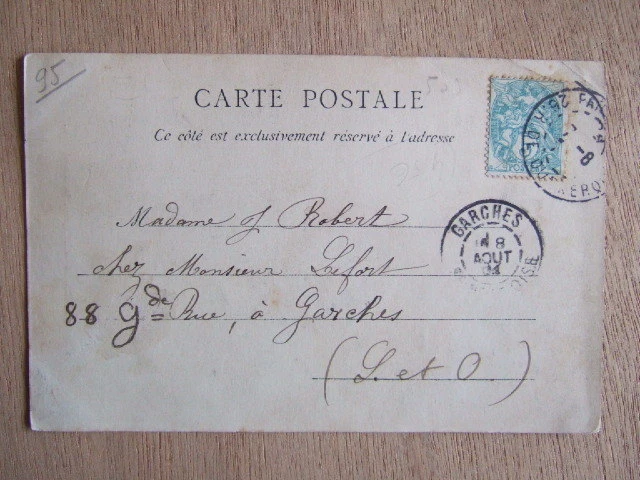 95
CARTE POSTALE
Ce côté est exclusivement réservé à l'adresse
Madame J Robert
chez Monsieur Lefort
88 Gde Rue, à Garches
(S. et O.)
GARCHES
8
AOUT